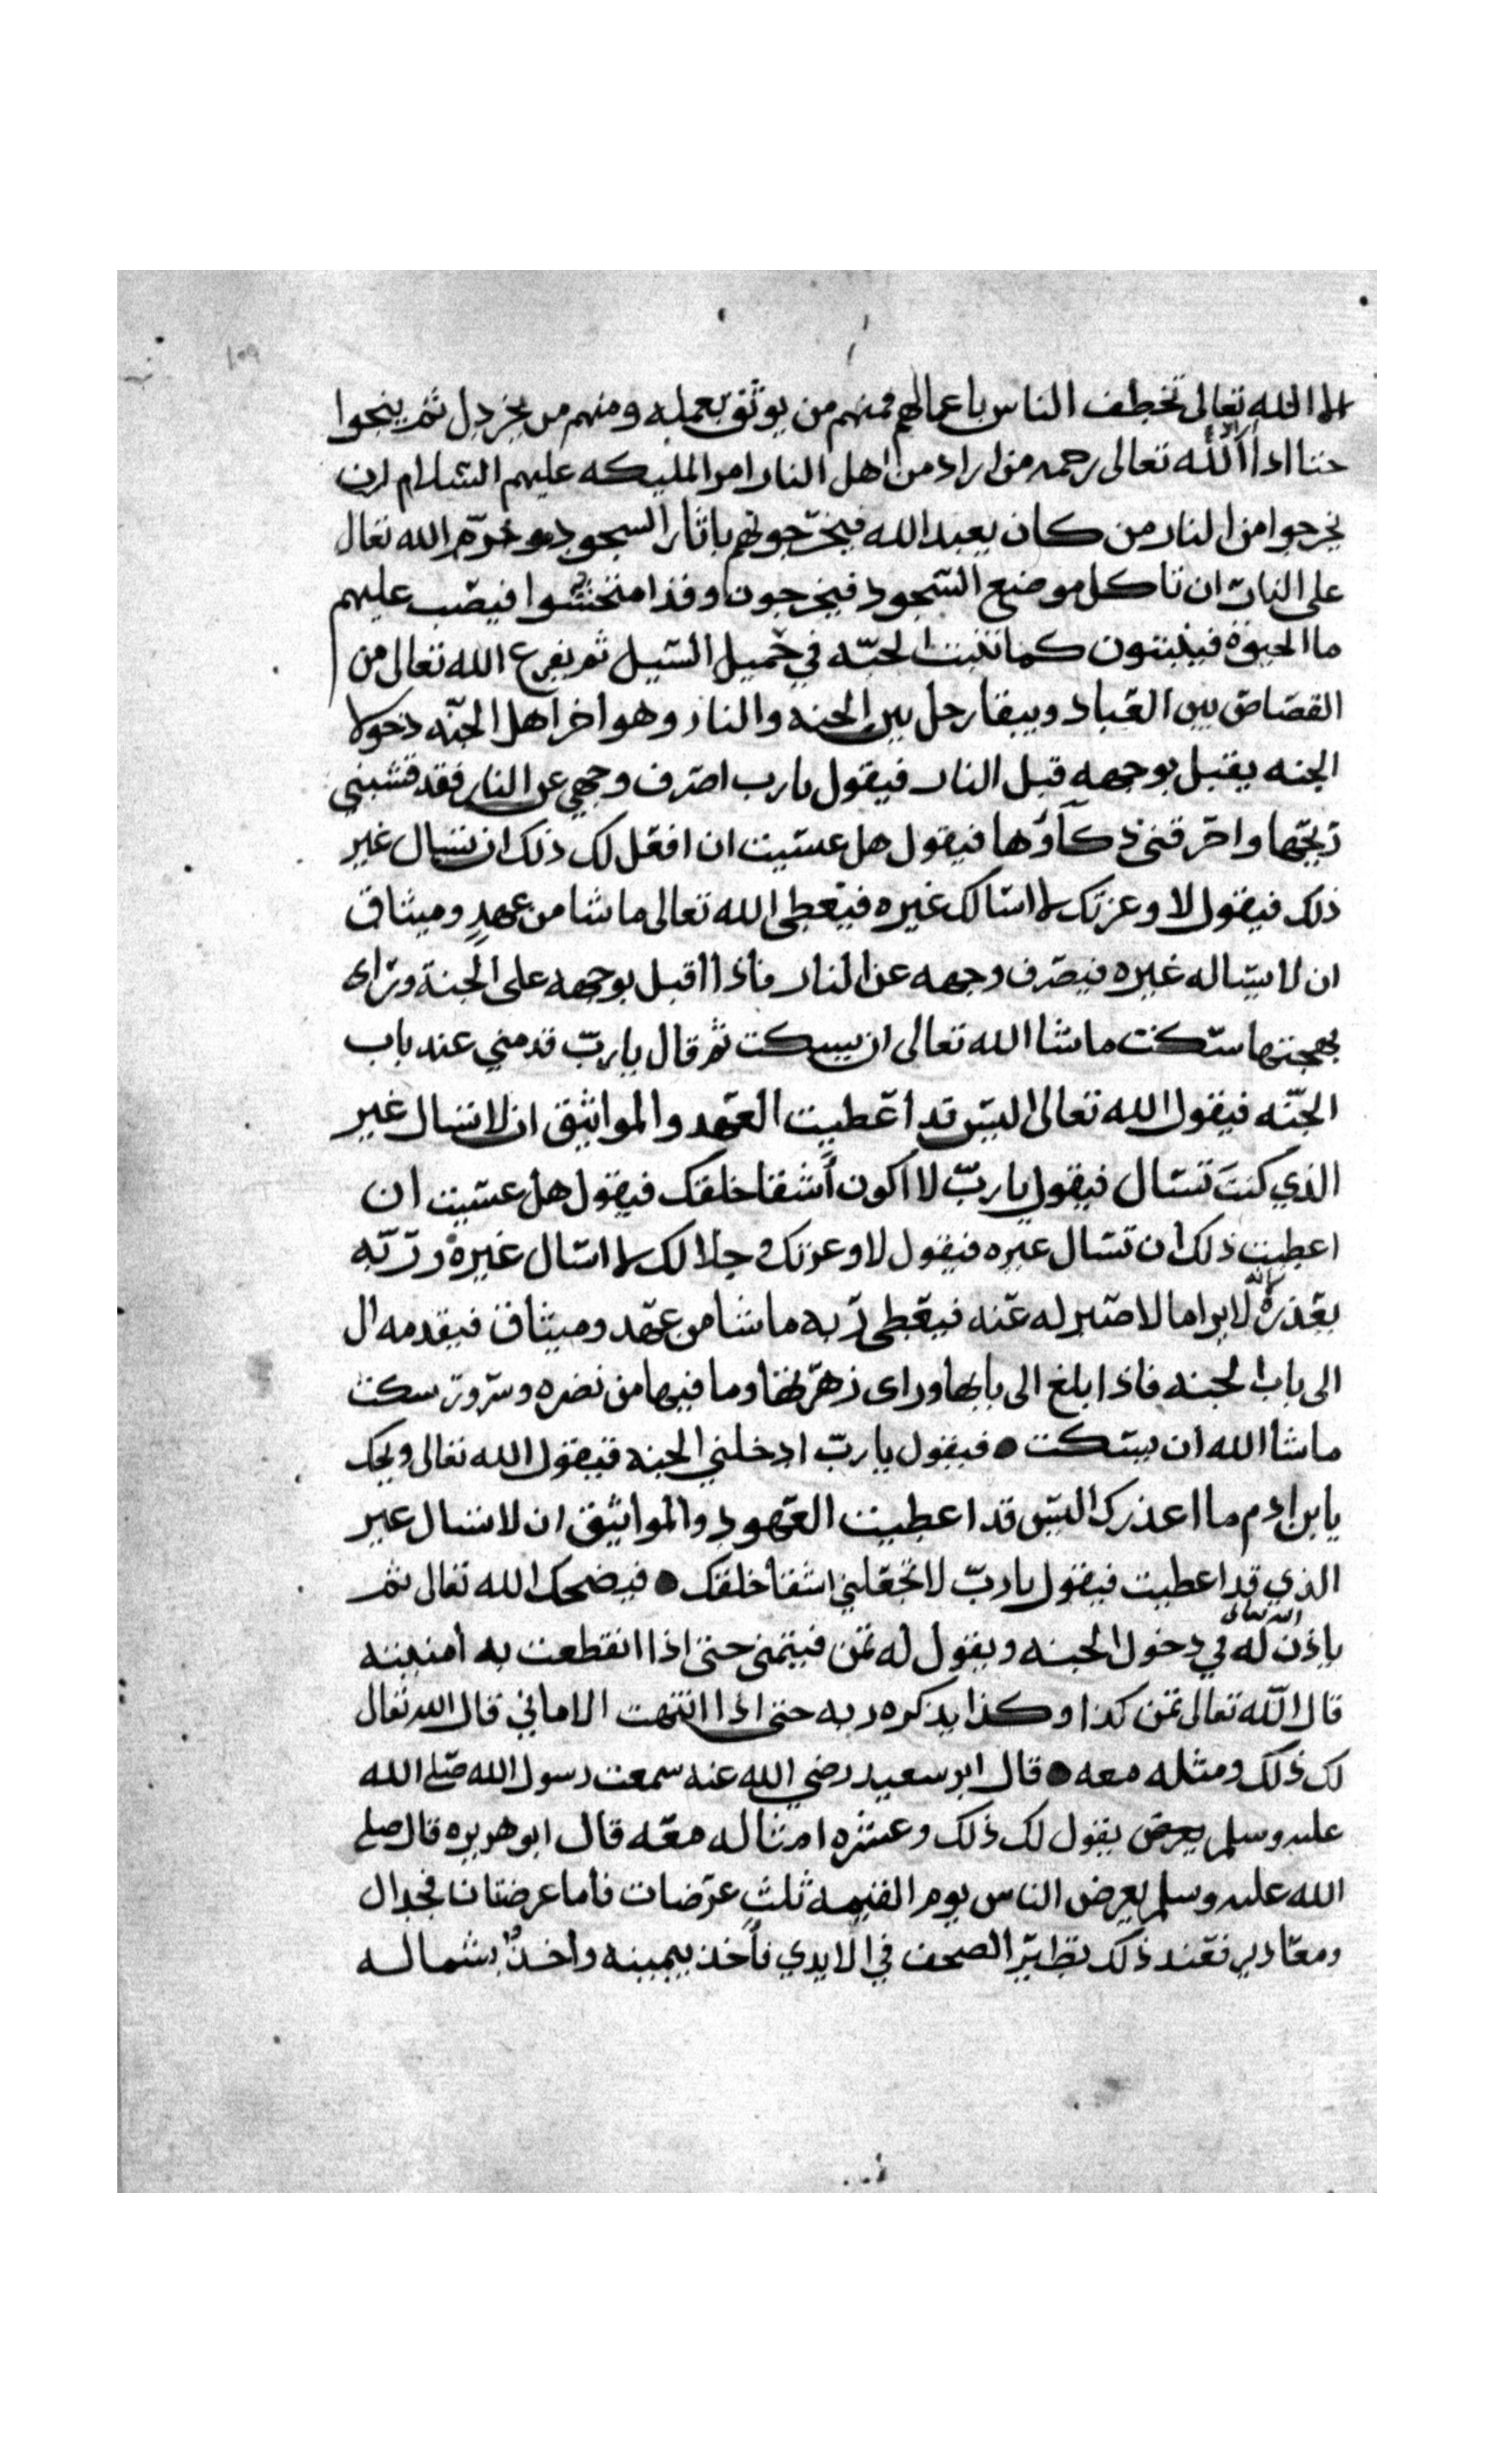 الا الله تعالى تخطف الناس باعمالهم فمنهم من يوثق بعمله ومنهم من يخردل ثم ينجوا
حتا اذا اراد الله تعالى رحمه من اراد من اهل النار امر المليكه عليهم السلام ان
يخرجوا من النار من كان يعبد الله فيخرجونهم باثار السجود وحرم الله تعالى
على النار ان تاكل موضع السجود فيخرجون وقد امتحشوا فيصب عليهم
ما الحيوة فينبتون كما تنبت الحبه في حميل السيل ثم يفرغ الله تعالى من
القصاص بين العباد ويبقا رجل بين الجنه والنار وهو اخر اهل الجنه دخولا
الجنه يقبل بوجهه قبل النار فيقول يارب اصرف وجهي عن النار فقد قشبني
ريحها واحرقني ذكآؤها فيقول هل عسيت ان افعل لك ذلك ان تسال غير
ذلك فيقول لا وعزتك لا اسالك غيره فيعطي الله تعالى ما شا من عهدٍ وميثاق
ان لا يساله غيره فيصرف وجهه عن النار فاذا اقبل بوجهه على الجنة وراى
بهجتها سكت ما شا الله تعالى ان يسكت ثم قال يا ربّ قدمني عند باب
الجنّه فيقول الله تعالى اليس قد اعطيت العهد والمواثيق ان لا تسال غير
الذي كنتَ تسال فيقول ياربّ لا اكون أشقا خلقك فيقول هل عسيت ان
اعطيت ذلك ان تسال غيره فيقول لا وعزتك وجلالك لا اسال غيره وربّه
يعذره لا يرا ما لا صبر له عنه فيعطي ربه ما شا من عهد وميثاق فيقدمه ال
الى باب الجنه فاذا بلغ الى بابها وراى زهرتها وما فيها من نضره وسرور سكت
ما شا الله ان يسكت ● فيقول ياربّ ادخلني الجنه فيقول الله تعالى ويحك
يا بن ادم ما اعذرك اليس قد اعطيت العهود والمواثيق ان لا تسال غير
الذي قد اعطيت فيقول ياربّ لا تجعلني اشقا خلقك ● فيضحك الله تعالى ثم
ياذن الله تعالى له في دخول الجنه ويقول له تمن فيتمنى حتى اذا انقطعت به امنيته
قال الله تعالى تمن كذا وكذا يذكره ربه حتى اذا انتهت الاماني قال الله تعالى
لك ذلك ومثله معه ● قال ابو سعيد رضي الله عنه سمعت رسول الله صلى الله
عليه وسلم يقول لك ذلك وعشره امثاله معه قال ابو هريره قال صلى
الله عليه وسلم يعرض الناس يوم القيمه ثلث عرضات فأما عرضتان فجدال
ومعاذير فعند ذلك تطير الصحف في الايدي فأخذ بيمينه واخذ بشماله